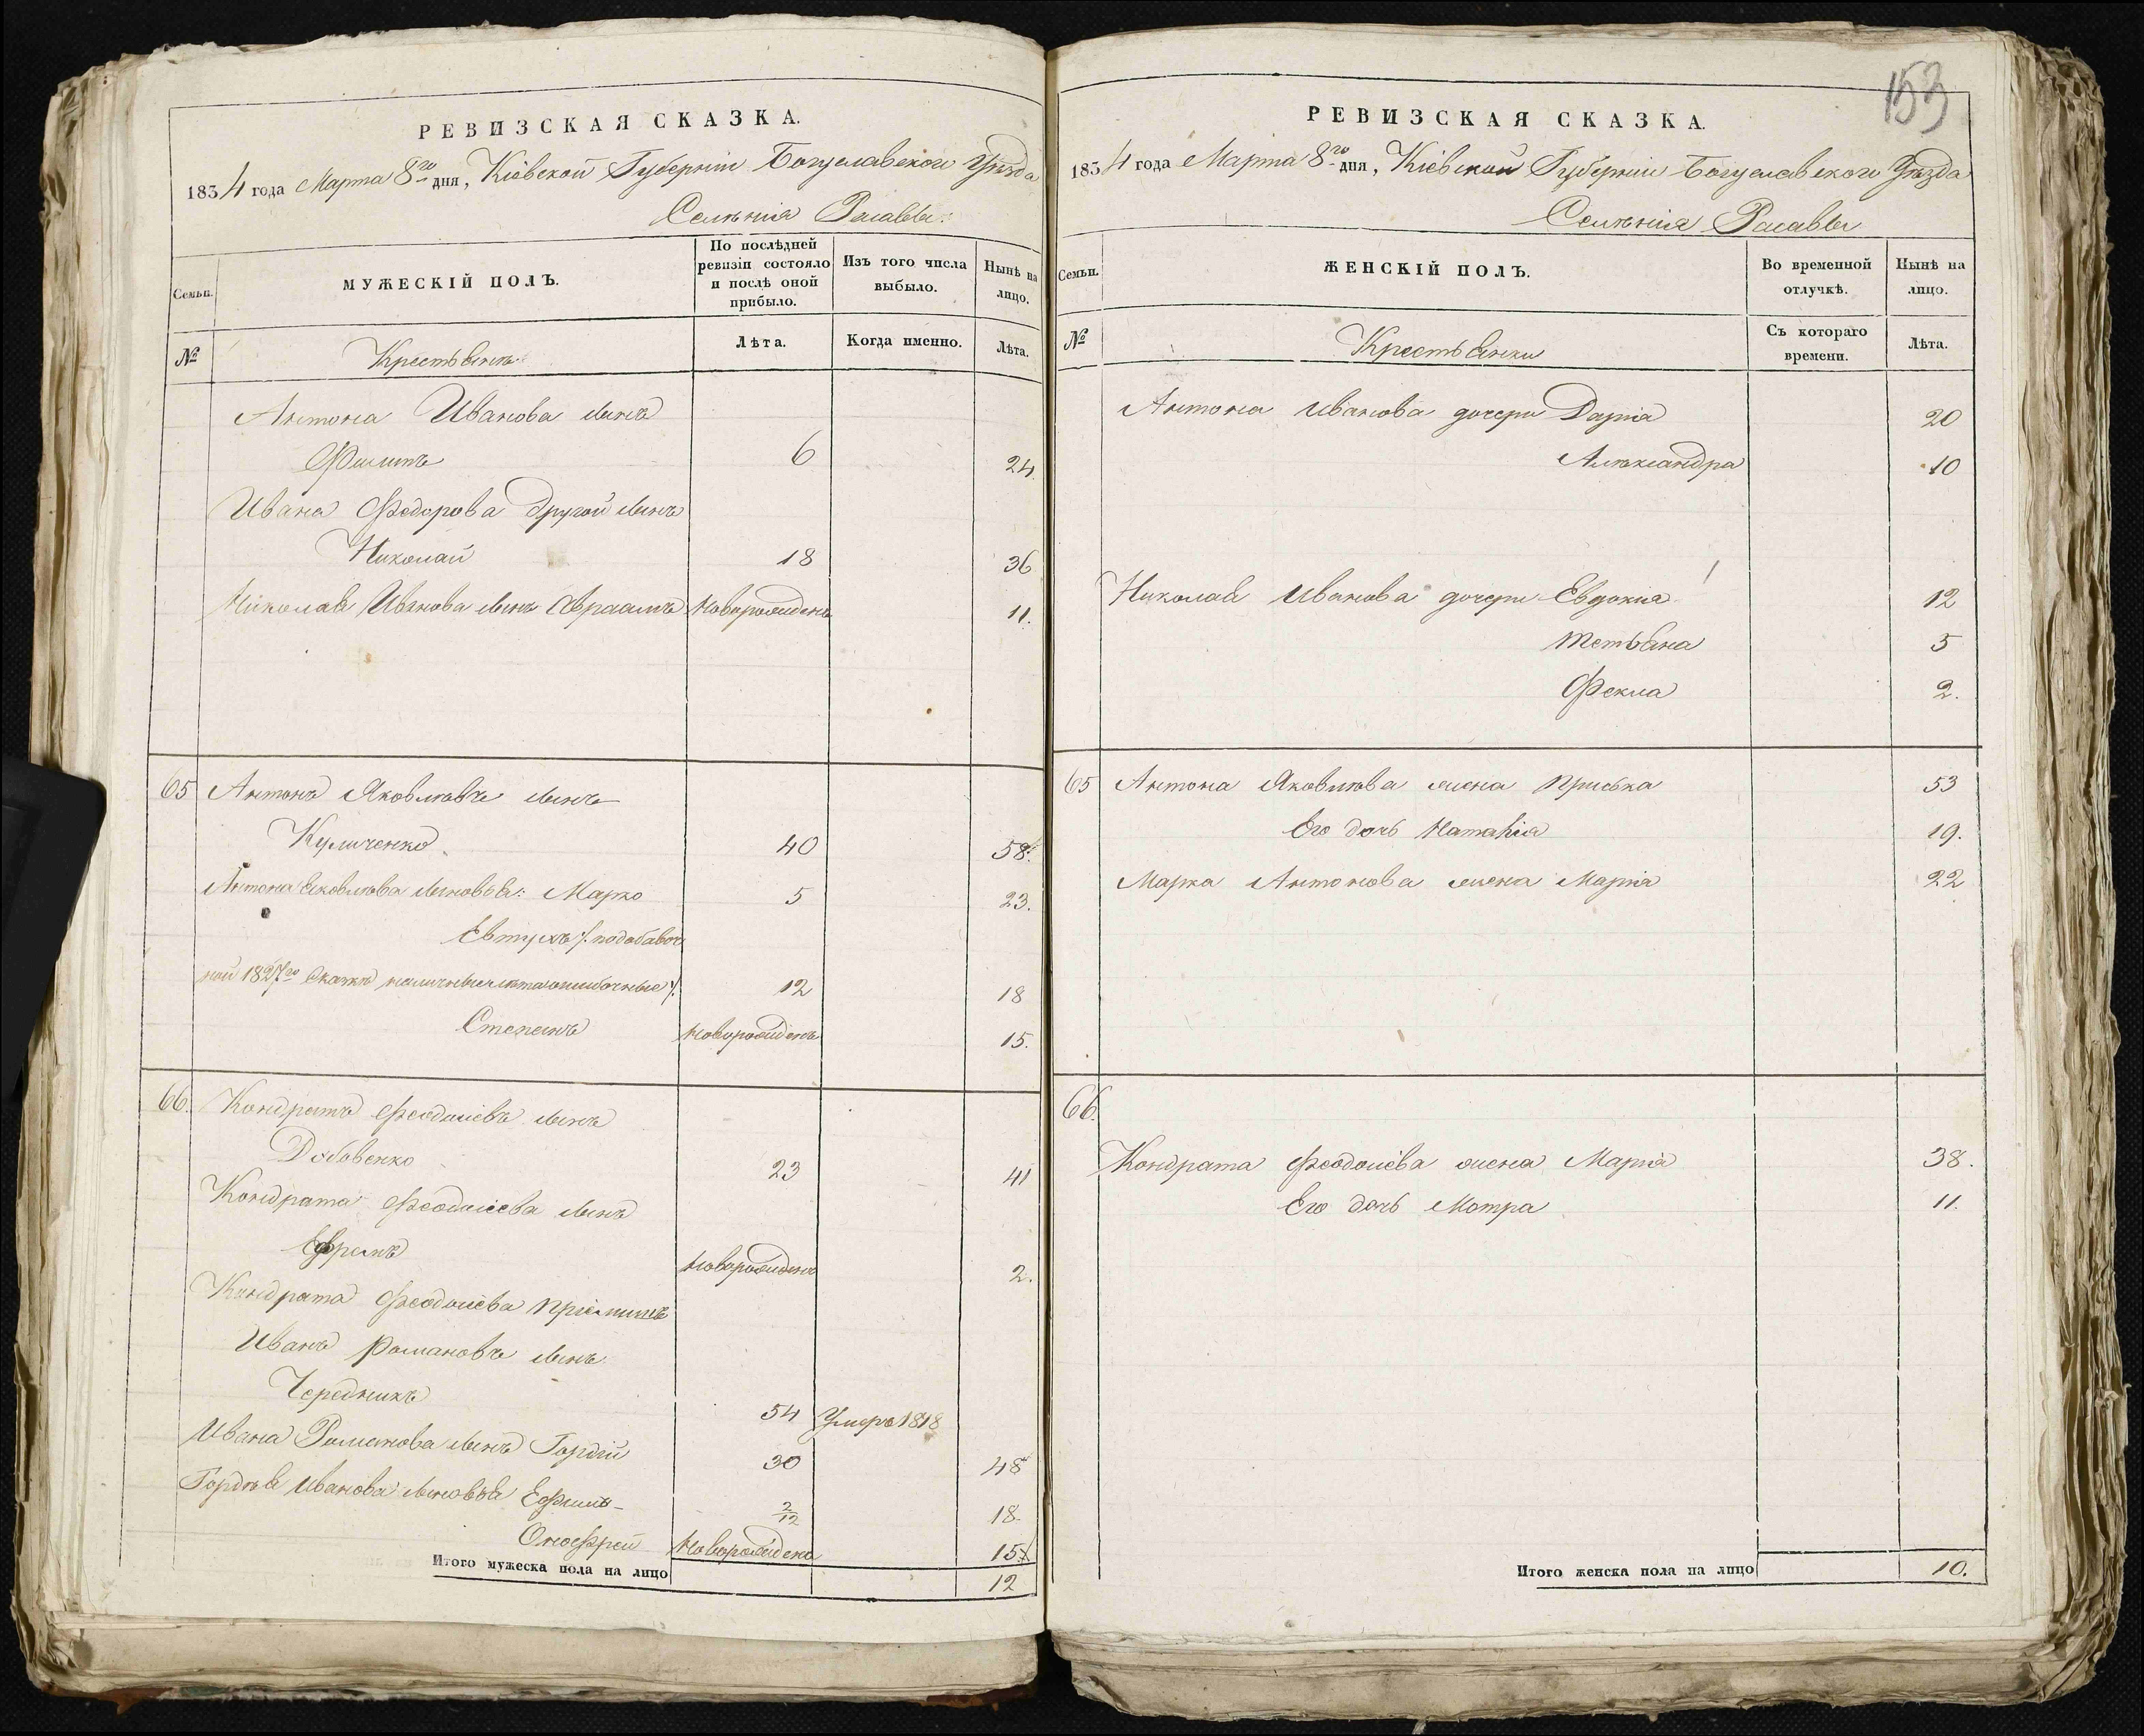 РЕВИЗСКАЯ СКАЗКА.
1834 года Марта 8го дня, Кіевской Губерніи Богуславскаго Уѣзда
Селѣнія Расавы
Семьи.
МУЖЕСКІЙ ПОЛЪ.
По послѣдней ревизіи состояло и послѣ оной прибыло.
Изъ того числа выбыло.
Нынѣ на лицо.
№
Крестьянъ
Лѣта.
Когда именно.
Лѣта.
Антона Иванова сынъ
Филипъ 6 24
Ивана Федорова другой сынъ
Николай 18 36
Николая Иванова сынъ Авраамъ Новорожденъ 11.
65 Антонъ Яковлѣвъ сынъ
Куличенко 40 58.
Антона Яковлѣва сыновья: Марко 5 23.
Евтухъ /: по добавоч
ной 1827го скаскѣ наличные лѣта ошибочные :/ 12 18
Степанъ Новорожденъ 15.
66. Кондратъ Феодосіевъ сынъ
Довбенко 23 41
Кондрата Феодосіева сынъ
Ефримъ Новорожденъ 2.
Кондрата Феодосіева пріемышъ
Иванъ Романовъ сынъ
Чередникъ 54 Умеръ 1818
Ивана Романова сынъ Гордій 30 48
Гордѣя Иванова сыновья Ефимъ 2/12 18.
Онофрей Новорожденъ 15.
Итого мужеска пола на лицо 12
153
РЕВИЗСКАЯ СКАЗКА.
1834 года Марта 8го дня, Кіевской Губерніи Богуславскаго Уѣзда
Селѣнія Расавы
Семьи.
ЖЕНСКІЙ ПОЛЪ.
Во временной отлучкѣ.
Нынѣ на лицо.
№
Крестьянки
Съ котораго времени.
Лѣта.
Антона Иванова дочери Дарія 20
Алѣксандра 10
Николая Иванова дочери Евдокія 12
Тетьяна 5
Фекла 2.
65 Антона Яковлѣва жена Приська 53
Его дочь Наталія 19.
Марка Антонова жена Марія 22
66.
Кондрата Феодосіева жена Марія 38.
Его дочь Мотра 11.
Итого женска пола на лицо 10.